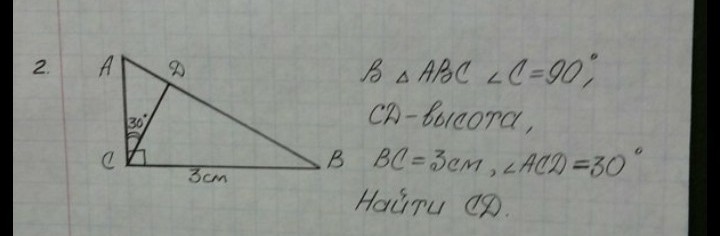 2.
A
D
30°
C
3см
B
В △ ABC ∠C=90°,
CD-высота,
BC=3см, ∠ACD=30°
Найти CD.